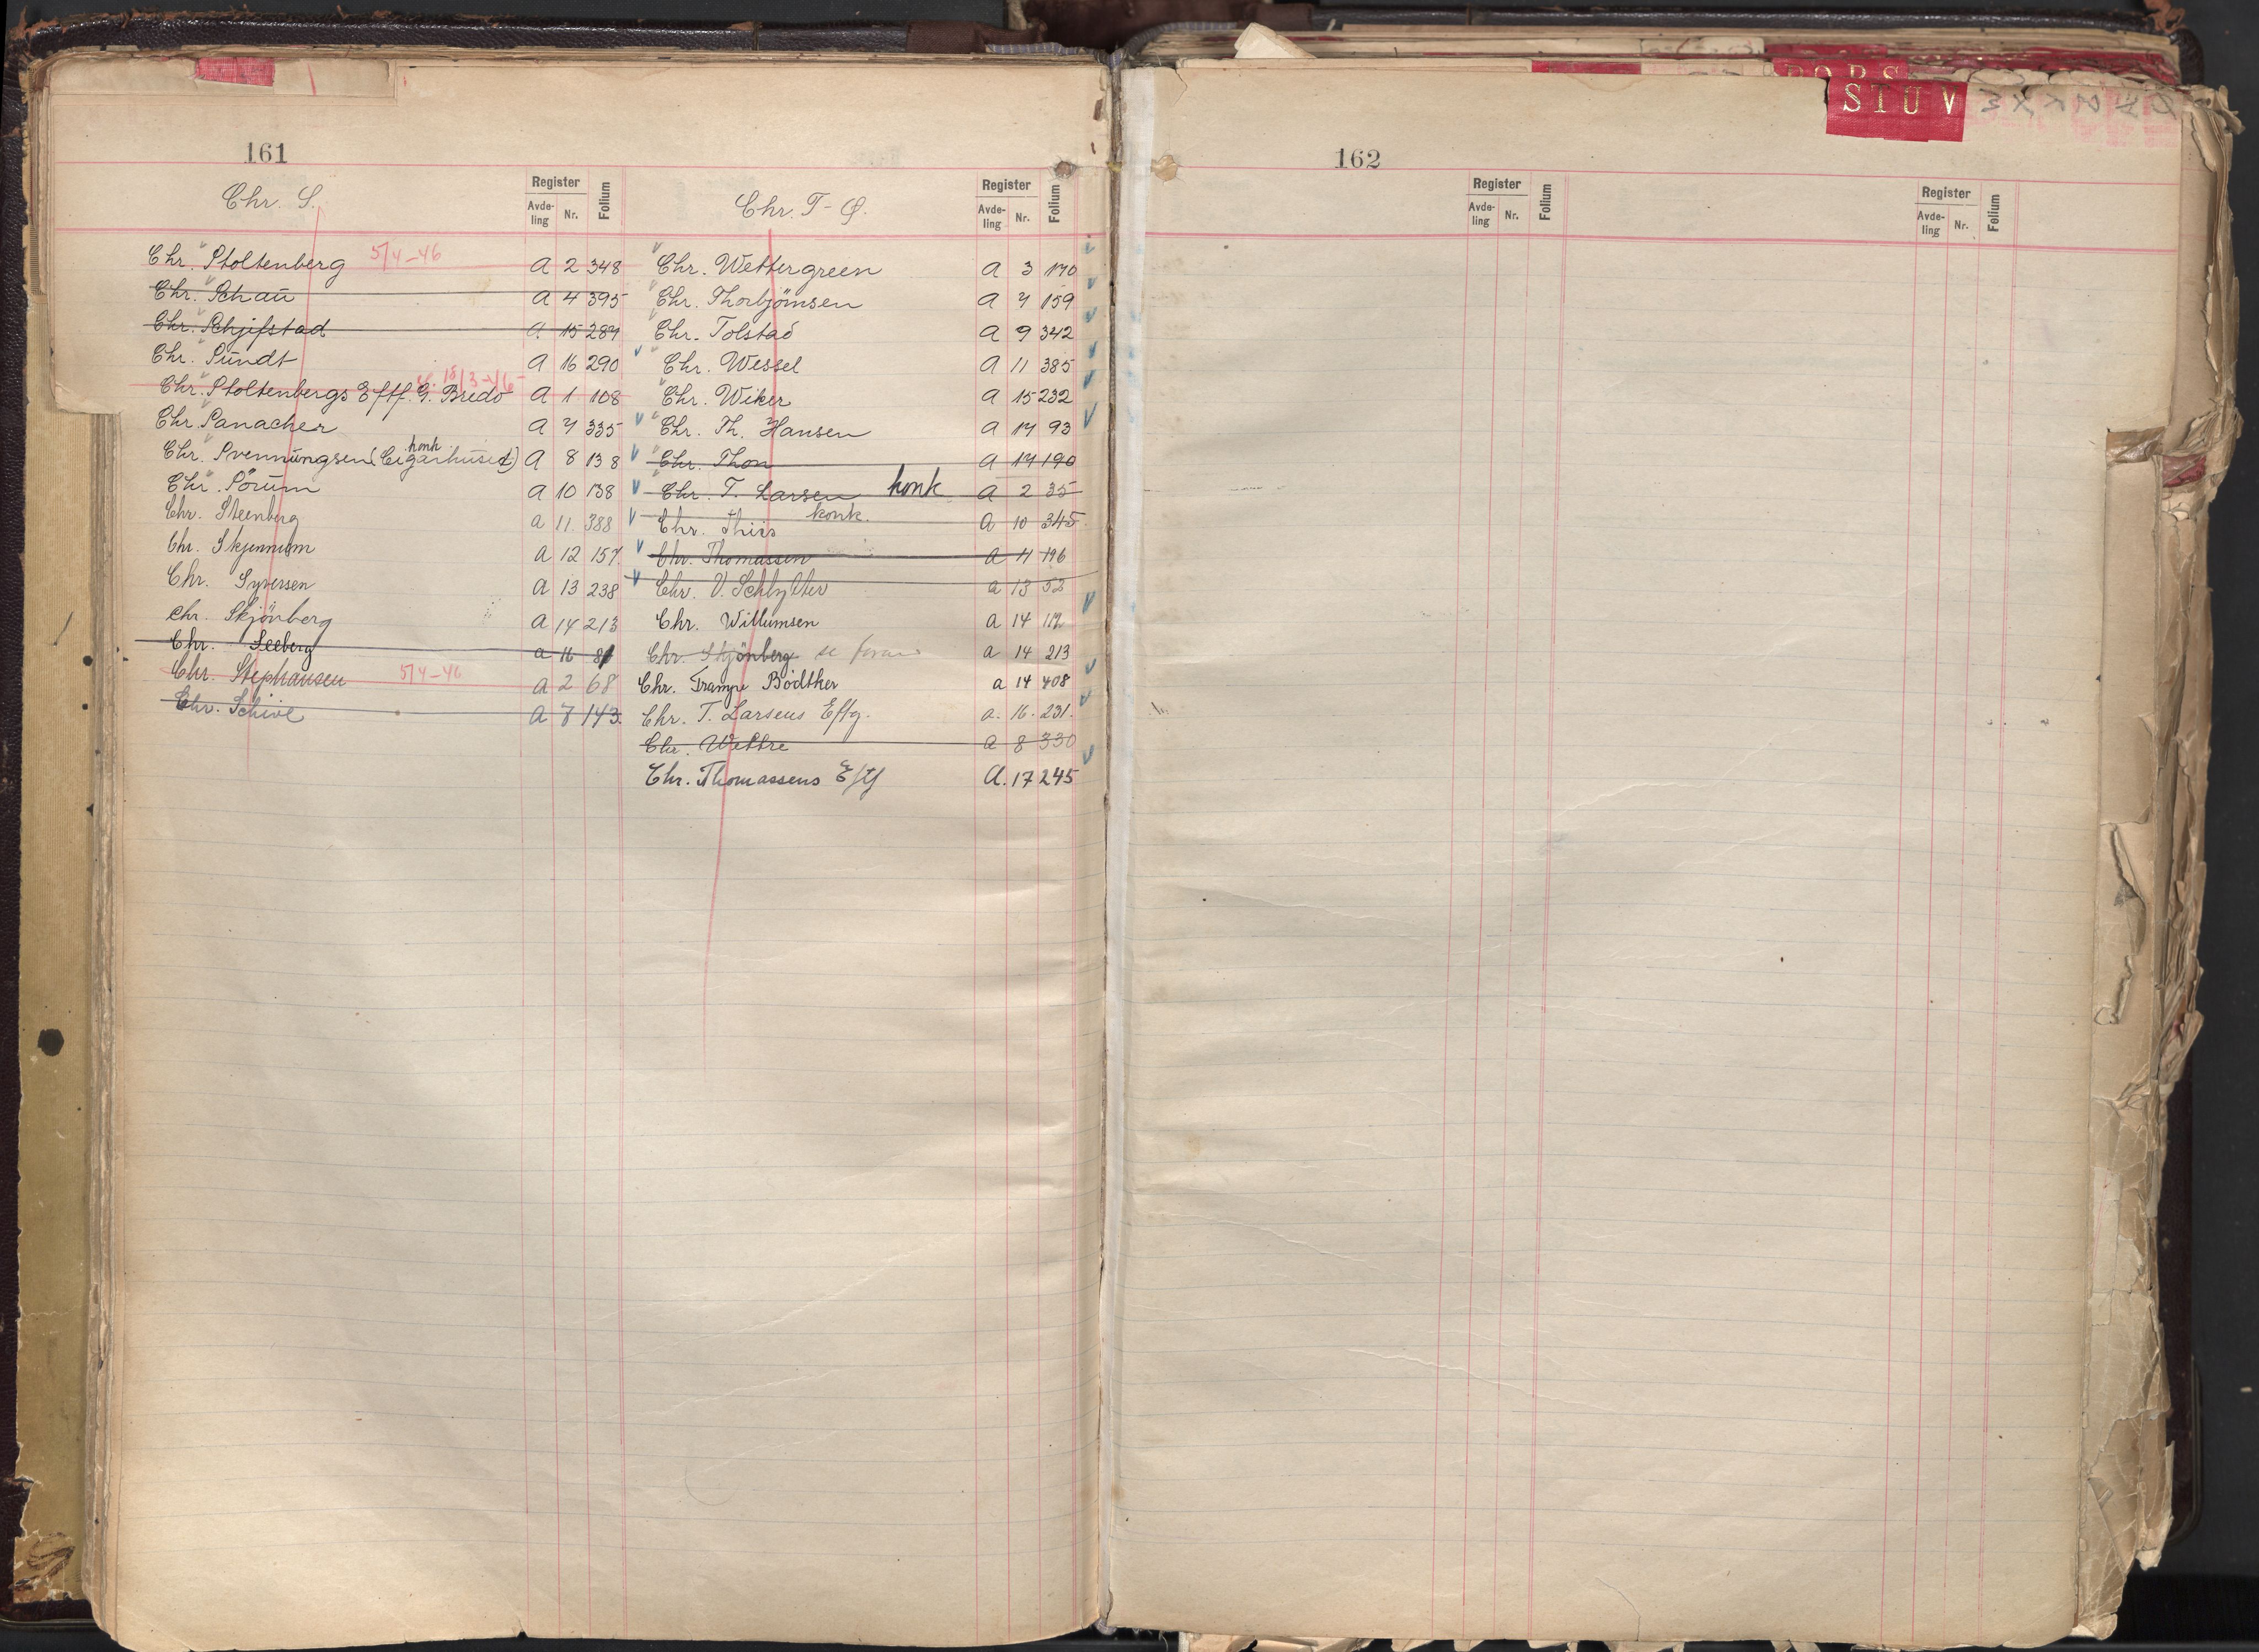 161
Chr. S.
Register
Avde-
ling
Nr.
Folium
Chr. Stoltenberg 5/4-46 A 2 348
Chr. Schau A 4 395
Chr. Schjifstad A. 15 287
Chr. Sundt A 16 290
Chr. Stoltenbergs Eftf. G. Bredo A 1 108
Chr. Sanacher A 7 335
konk
Chr. Svennungsen (Cigarhuset) A 8 138
Chr. Sörum A 10 138
Chr. Steenberg a 11. 388
Chr. Skjennum A 12 157.
Chr. Syversen A 13 238
Chr. Skjönberg A 14 213
Chr. Seeberg a 16 81
Chr. Stephansen 5/4-46 A 2 68
Chr. Schive A 7 143.
Chr. T-Ø.
Register
Avde-
ling
Nr.
Folium
Chr. Wettergreen A 3 170
Chr. Thorbjörnsen A 7 159
Chr. Tolstad A 9 342
Chr. Wessel A 11 385
Chr. Wiker A 15 232
Chr. Th. Hansen A 17 93
Chr. Thon A 17 190
Chr. T. Larsen konk A 2 35
konk.
Chr. Thiis A 10 345.
Chr. Thomassen A 11 196
Chr. V. Schlytter a 13 52
Chr. Willumsen A 14 112
Chr. Skjönberg se foran a 14 213
Chr. Trampe Bödtker a 14 408
Chr. T. Larsens Eftg. a. 16. 231.
Chr. Wettre a 8 330
Chr. Thomassens Eftf A. 17 245
162
Register
Avde-
ling
Nr.
Folium
Register
Avde-
ling
Nr.
Folium
S T U V